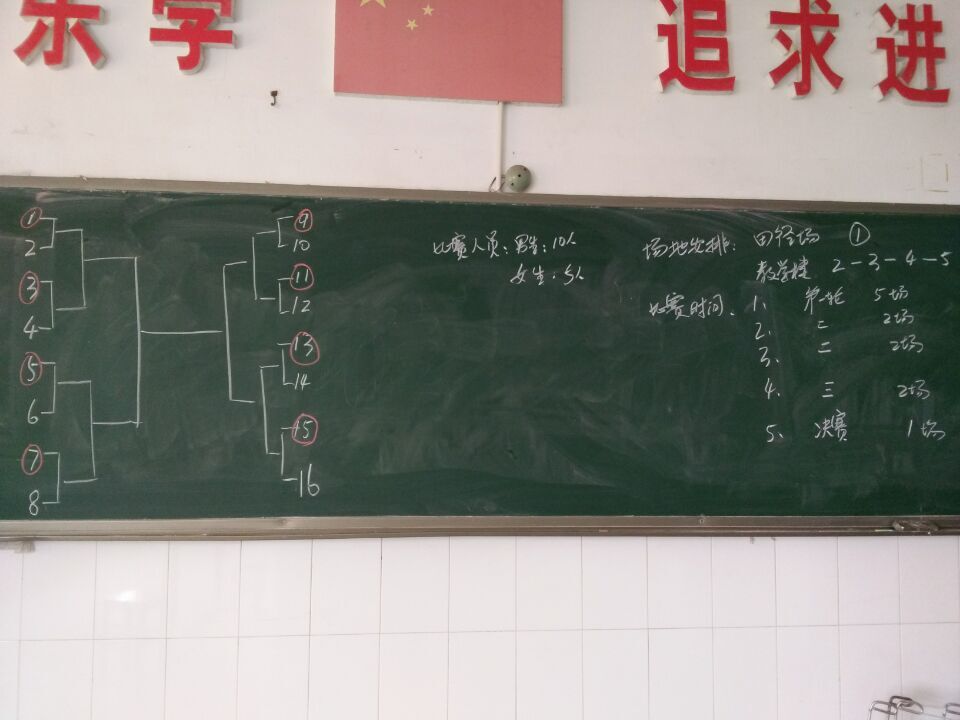 乐学
追求进
①
2
③
4
⑤
6
⑦
8
⑨
10
⑪
12
⑬
14
⑮
16
比赛人员：男生：10人
女生：5人
场地安排：田径场 ①
教学楼 2-3-4-5
比赛时间、1、第一轮 5场
2、二 2场
3、二 2场
4、三 2场
5、决赛 1场